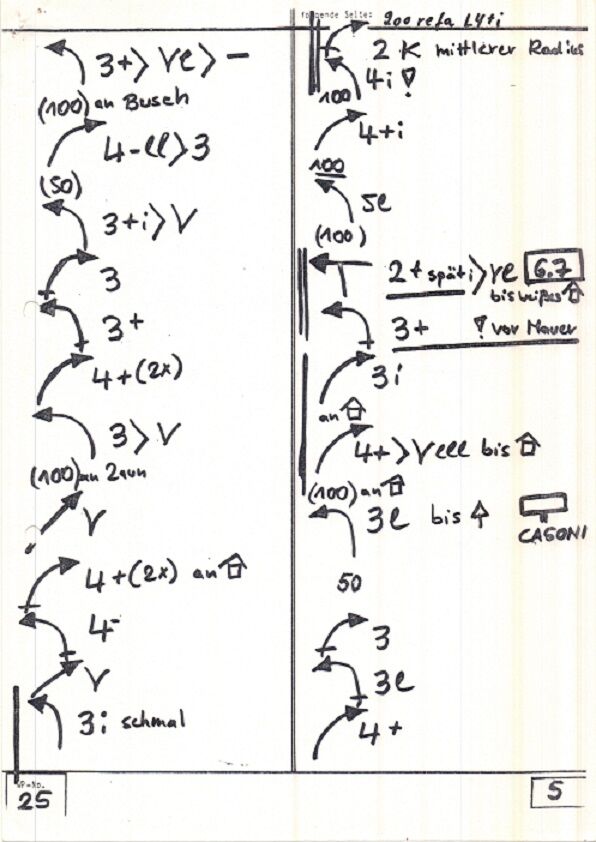 folgende Seite: 200 refa L4+i
3+> Ve > –
(100) an Busch
4-ll>3
(50)
3+i>V
3
3+
4+(2x)
3>V
(100) an Zaun
V
4+(2x) an
4-
V
3i schmal
VP-No.
25
2 K mittlerer Radius
4i !
100
4+i
100
5l
(100)
2+ späti > Ve 6.7
bis weißes
3+ ! vor Mauer
3i
an
4+>Vlll bis
(100) an
3l bis
CASONI
50
3
3l
4+
5